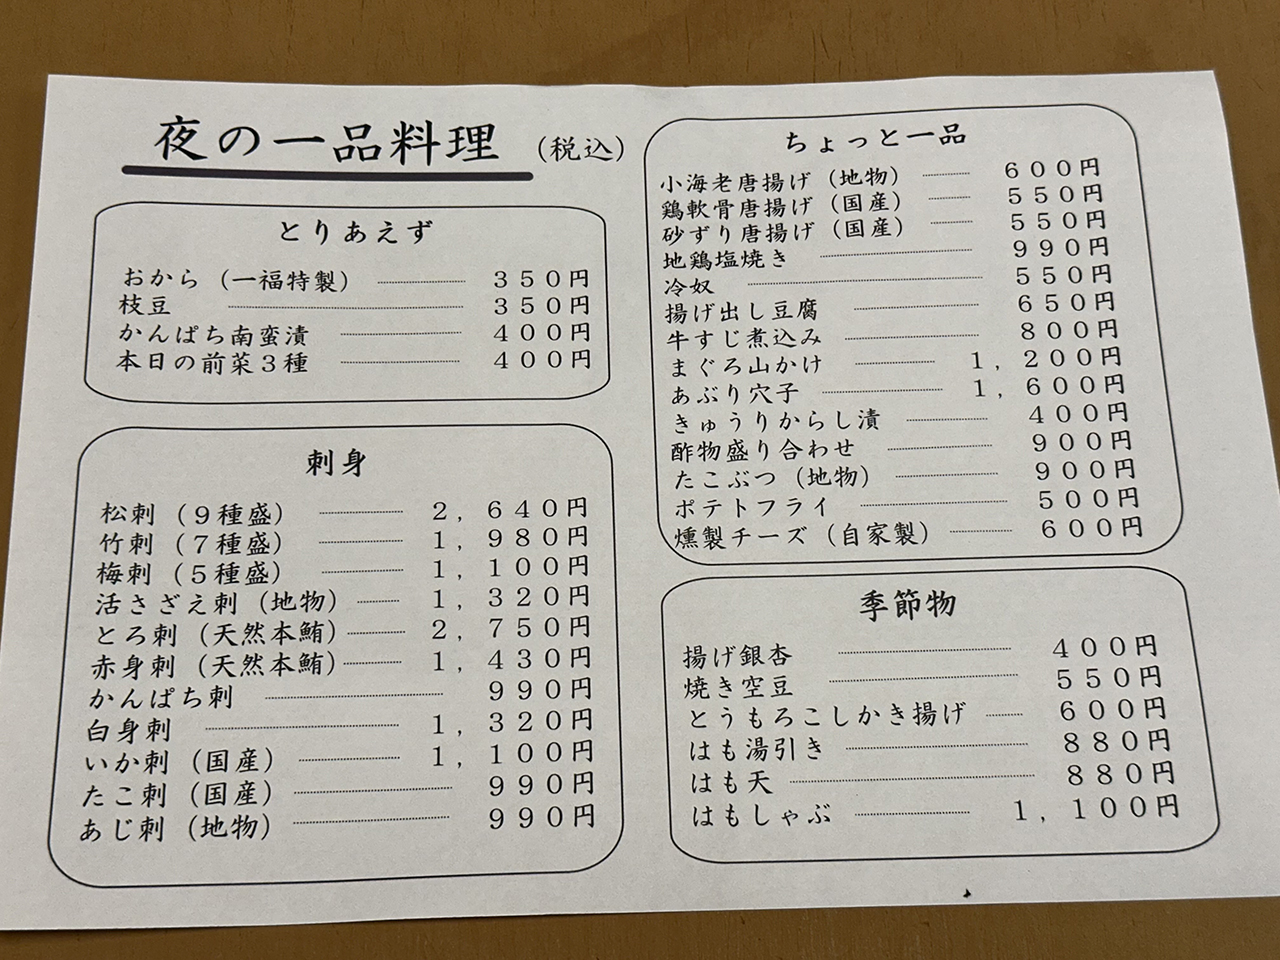 夜の一品料理 (税込)
とりあえず
おから (一福特製) 350円
枝豆 350円
かんぱち南蛮漬 400円
本日の前菜3種 400円
刺身
松刺 (9種盛) 2, 640円
竹刺 (7種盛) 1, 980円
梅刺 (5種盛) 1, 100円
活さざえ刺 (地物) 1, 320円
とろ刺 (天然本鮪) 2, 750円
赤身刺 (天然本鮪) 1, 430円
かんぱち刺 990円
白身刺 1, 320円
いか刺 (国産) 1, 100円
たこ刺 (国産) 990円
あじ刺 (地物) 990円
ちょっと一品
小海老唐揚げ (地物) 600円
鶏軟骨唐揚げ (国産) 550円
砂ずり唐揚げ (国産) 550円
地鶏塩焼き 990円
冷奴 550円
揚げ出し豆腐 650円
牛すじ煮込み 800円
まぐろ山かけ 1, 200円
あぶり穴子 1, 600円
きゅうりからし漬 400円
酢物盛り合わせ 900円
たこぶつ (地物) 900円
ポテトフライ 500円
燻製チーズ (自家製) 600円
季節物
揚げ銀杏 400円
焼き空豆 550円
とうもろこしかき揚げ 600円
はも湯引き 880円
はも天 880円
はもしゃぶ 1, 100円